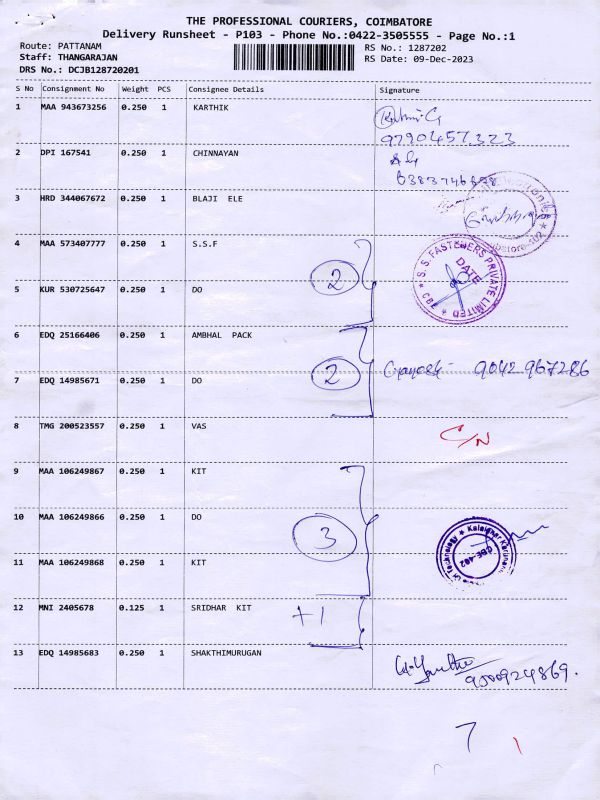 THE PROFESSIONAL COURIERS, COIMBATORE
Delivery Runsheet - P103 - Phone No.:0422-3505555 - Page No.:1
Route: PATTANAM RS No.: 1287202
Staff: THANGARAJAN RS Date: 09-Dec-2023
DRS No.: DCJB128720201
S No Consignment No Weight PCS Consignee Details Signature
1 MAA 943673256 0.250 1 KARTHIK
9790457323
2 DPI 167541 0.250 1 CHINNAYAN
3 HRD 344067672 0.250 1 BLAJI ELE
4 MAA 573407777 0.250 1 S.S.F
S.S. FASTENERS PRIVATE LIMITED * CBE *
DATE
2
5 KUR 530725647 0.250 1 DO
6 EDQ 25166406 0.250 1 AMBHAL PACK
2 9042967286
7 EDQ 14985671 0.250 1 DO
8 TMG 200523557 0.250 1 VAS C/N
9 MAA 106249867 0.250 1 KIT
10 MAA 106249866 0.250 1 DO
3
CBE-402
11 MAA 106249868 0.250 1 KIT
12 MNI 2405678 0.125 1 SRIDHAR KIT +1
13 EDQ 14985683 0.250 1 SHAKTHIMURUGAN
7